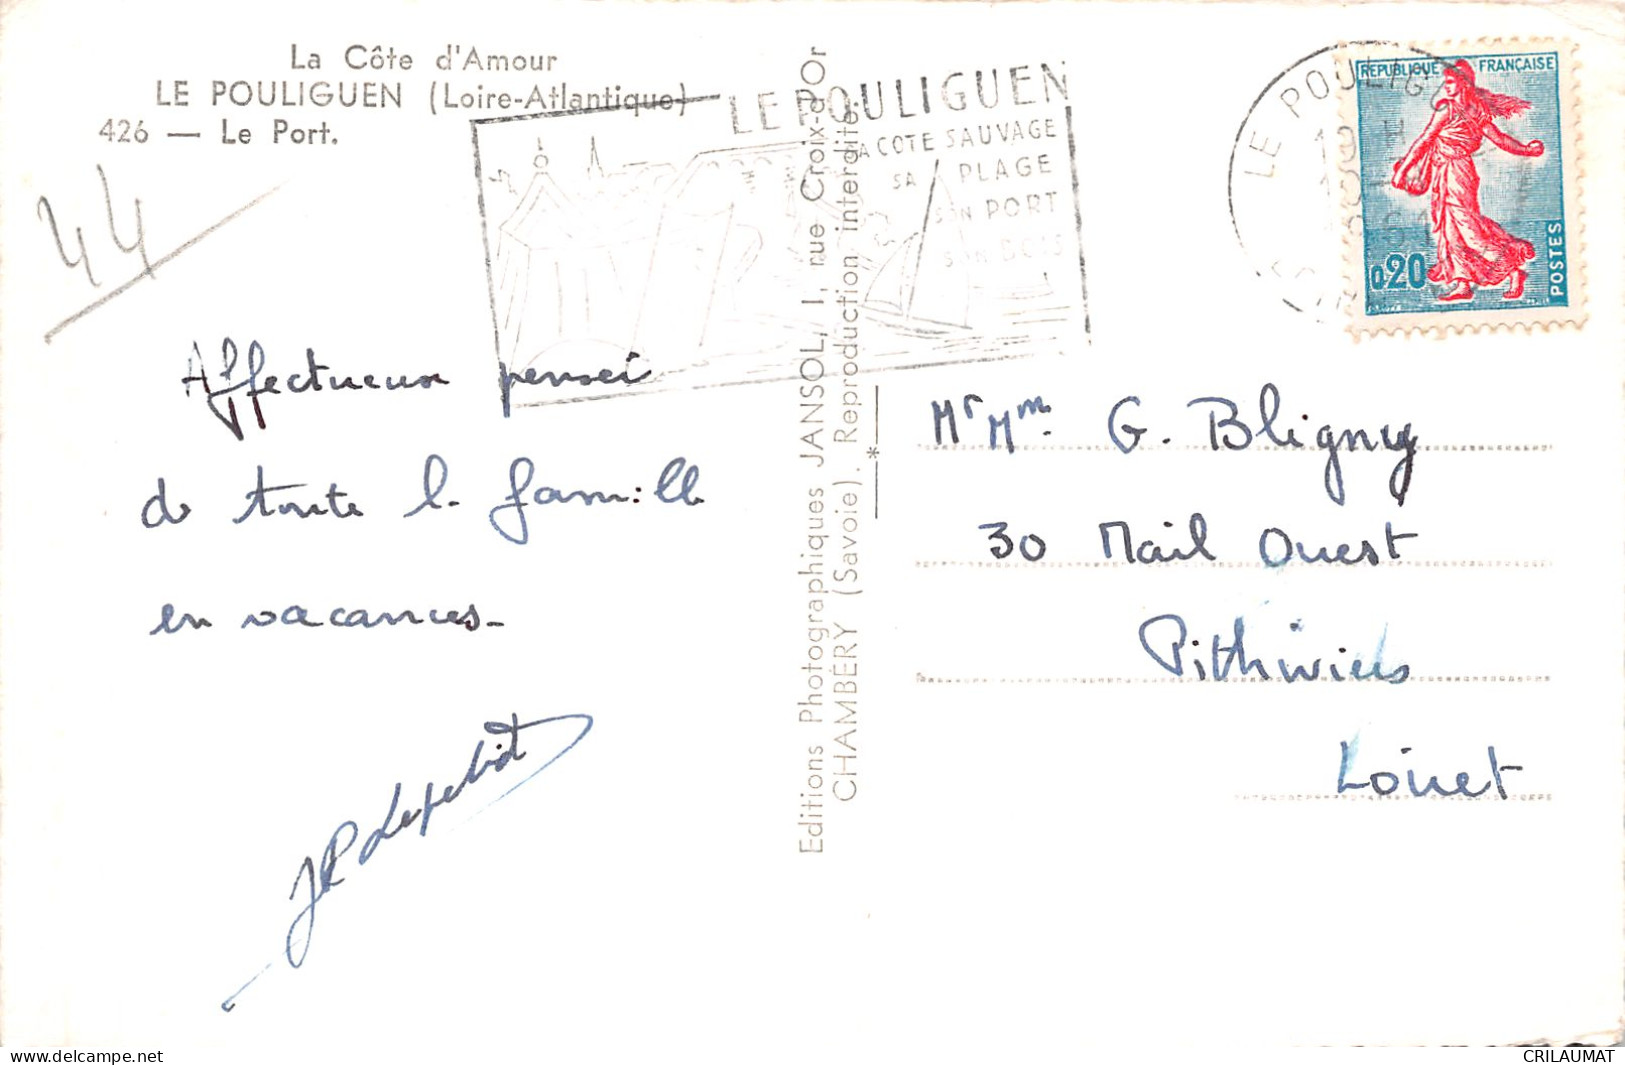 La Côte d'Amour
LE POULIGUEN (Loire-Atlantique)
426 — Le Port.
44
LE POULIGUEN
SA COTE SAUVAGE
SA PLAGE
SON PORT
SON BOIS
LE POULIG
19 H
1961
REPUBLIQUE FRANÇAISE
0,20
POSTES
Affectueux pensei
de toute la famille
en vacances_
Editions Photographiques JANSOL, 1, rue Croix-d'Or
CHAMBÉRY (Savoie). Reproduction interdite.
*
Mr Mme G. Bligny
30 Mail Ouest
Pithiviers
Loiret
delcampe.net
CRILAUMAT